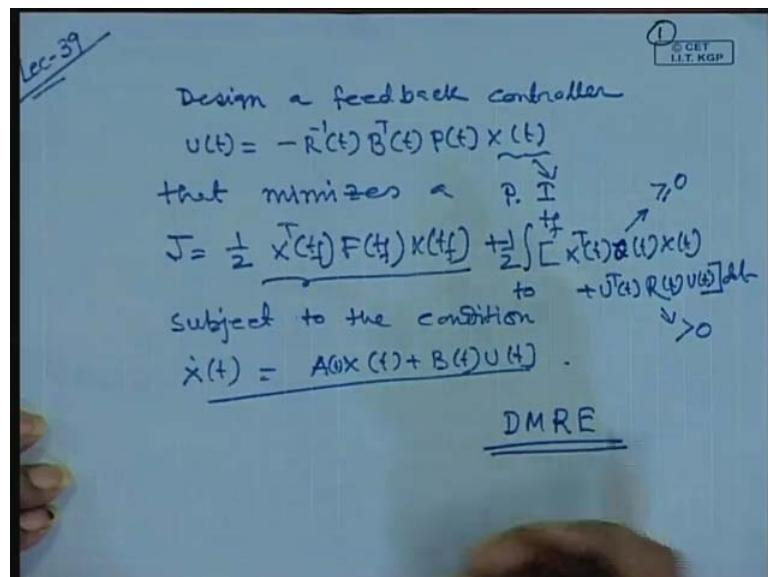 Lec-39
①
© CET
I.I.T. KGP
Design a feedback controller
U(t) = - R⁻¹(t) Bᵀ(t) P(t) X(t)
that minimizes a P. I
J = 1/2 Xᵀ(tf) F(tf) X(tf) + 1/2 ∫ₜ₀^tf [ Xᵀ(t) Q(t) X(t) ⩾0
+ Uᵀ(t) R(t) U(t)] dt
subject to the condition >0
ẋ(t) = A(t)X(t) + B(t)U(t) .
DMRE